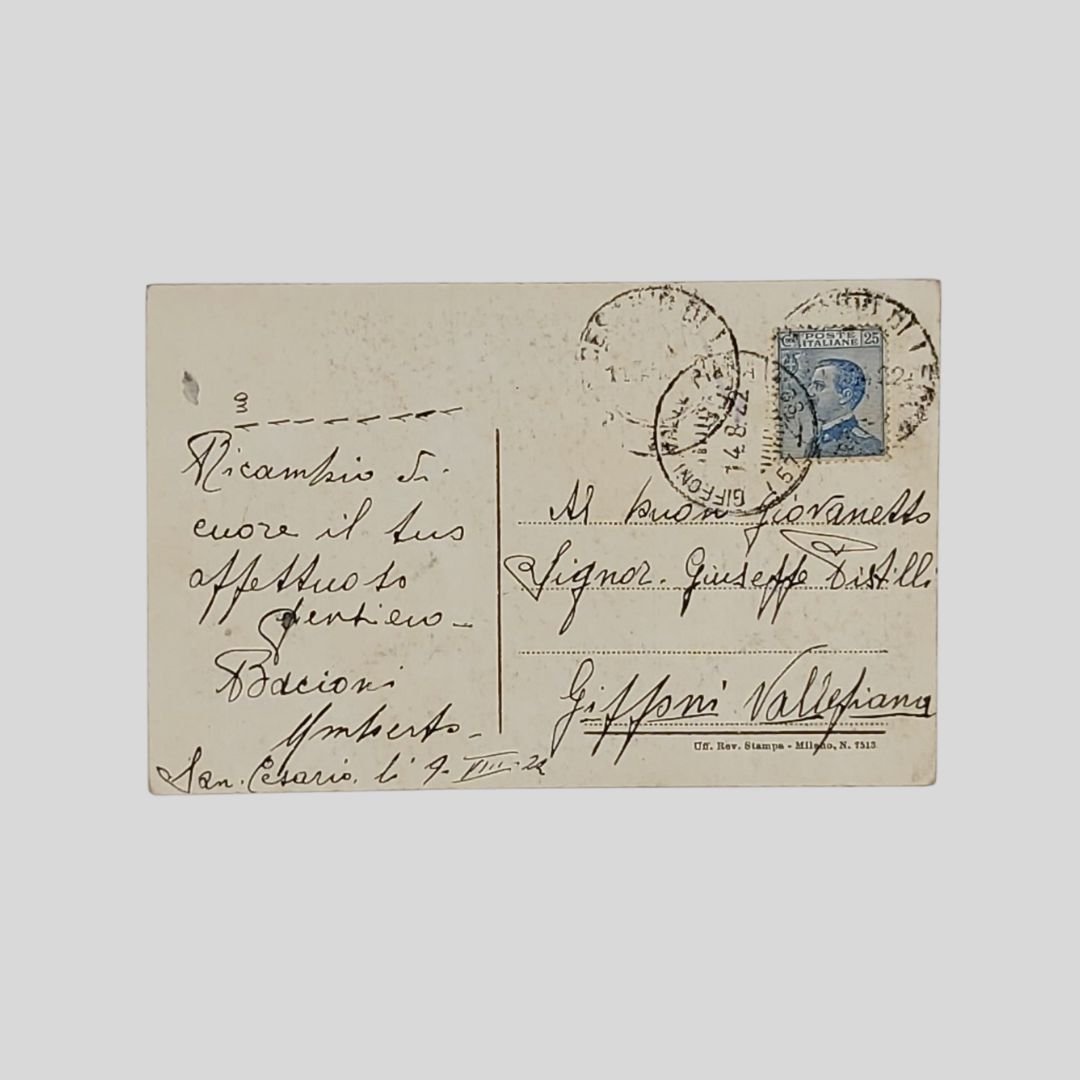 Ricambio di
cuore il tuo
affettuoso
pensiero -
Bacioni
Umberto -
San. Cesario. li 9 - VIII - 22
POSTE
ITALIANE
25
GIFFONI VALLE PIANA
14.8.22
Al buon Giovanetto
Signor. Giuseppe Distilli
Giffoni Vallepiana
Uff. Rev. Stampa - Milano, N. 7513.